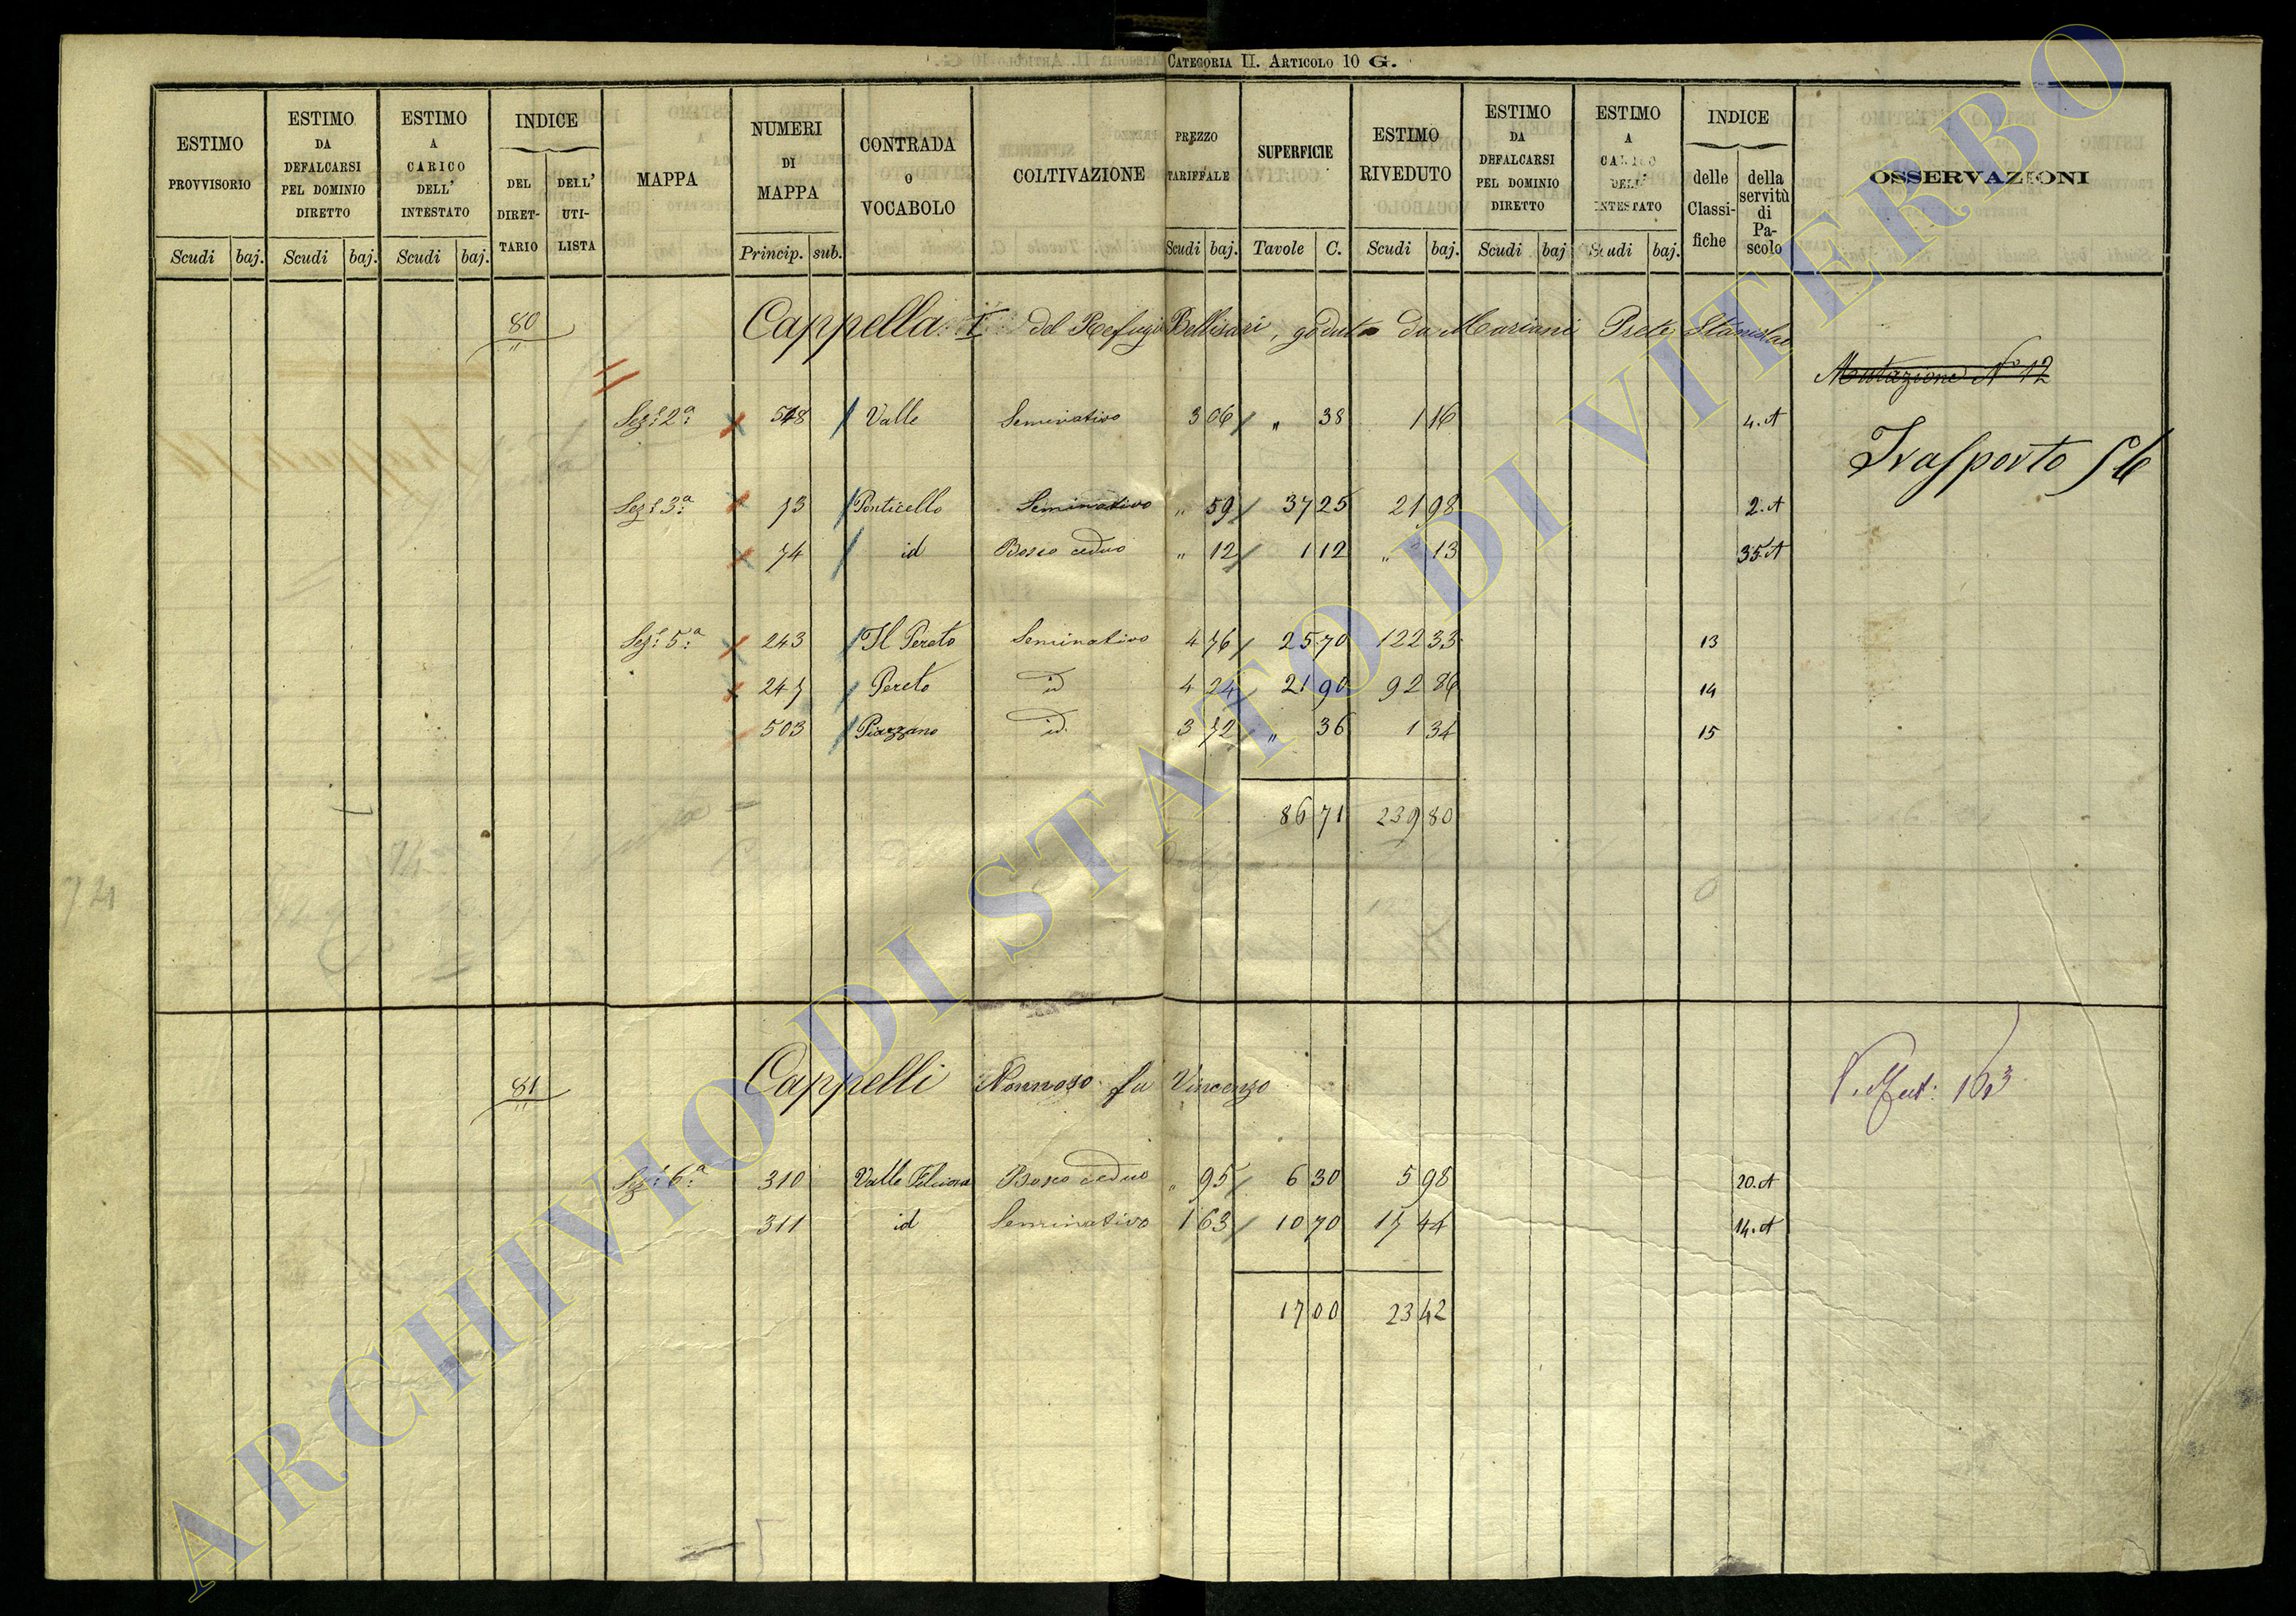 CATEGORIA II. ARTICOLO 10 G.
ESTIMO PROVVISORIO Scudi baj.
ESTIMO DA DEFALCARSI PEL DOMINIO DIRETTO Scudi baj.
ESTIMO A CARICO DELL' INTESTATO Scudi baj.
INDICE DEL DIRET-TARIO DELL' UTI-LISTA
MAPPA
NUMERI DI MAPPA Princip. sub.
CONTRADA O VOCABOLO
COLTIVAZIONE
PREZZO TARIFFALE Scudi baj.
SUPERFICIE Tavole C.
ESTIMO RIVEDUTO Scudi baj.
ESTIMO DA DEFALCARSI PEL DOMINIO DIRETTO Scudi baj
ESTIMO A CARICO DELL' INTESTATO Scudi baj.
INDICE delle Classi-fiche della servitù di Pa-scolo
OSSERVAZIONI
80 Cappella I del Refugio Bellisari, goduta da Mariani Prete Stanislao
Mutazione N° 12
Sez: 2ª 548 Valle Seminativo 3 06 " 38 1 16 4. A
Trasporto 56
Sez: 3ª 73 Ponticello Seminativo " 59 37 25 21 98 2. A
74 id Bosco ceduo " 12 1 12 " 13 35. A
Sez: 5ª 243 Il Pereto Seminativo 4 76 25 70 122 33 13
247 Pereto id 4 24 21 90 92 86 14
503 Piazzano id. 3 72 " 36 1 34 15
86 71 239 80
74
81 Cappelli Nonnoso fu Vincenzo
V. Mut: 163
Sez: 6ª 310 Valle Bosco ceduo " 95 6 30 5 98 20. A
311 id Seminativo 1 63 10 70 17 44 14. A
17 00 23 42
ARCHIVIO DI STATO DI VITERBO